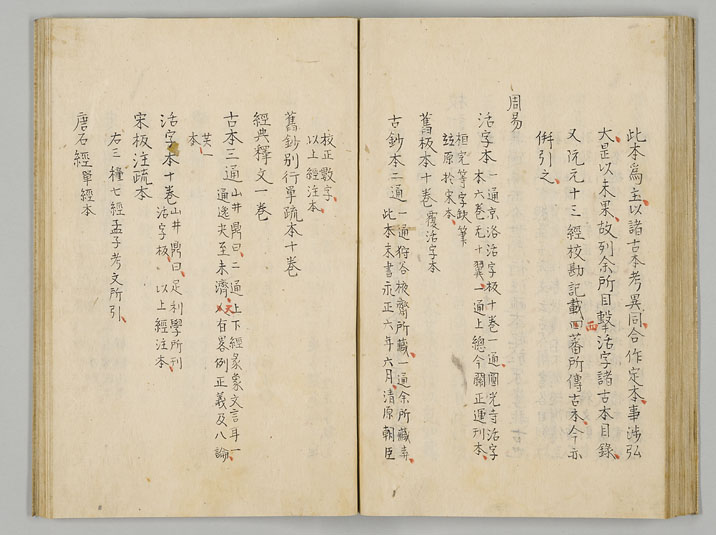 此本爲主以諸古本考異同合作定本事涉弘
大是以未果故列余所目擊活字諸古本目錄
又阮元十三經校勘記載西蕃所傳古本今亦
併引之
周易
活字本 一通京洛活字板十卷一通圓光寺活字
本六卷无十翼一通上總今關正運刊本
桓完等字缺筆
玆原於宋本
舊板本十卷覆活字本
古鈔本二通 一通狩谷棭齋所藏一通余所藏
此本末書永正六年六月清原朝臣
校正數字
以上經注本
舊鈔別行單疏本十卷
經典釋文一卷
古本三通 山井鼎曰二通上下經彖象文言耳一
通逸夬至未濟又有畧例正義及八論
本
活字本十卷 山井鼎曰足利學所刊
活字板 以上經注本
宋板注疏本
右三種七經孟子考文所引
唐石經單經本